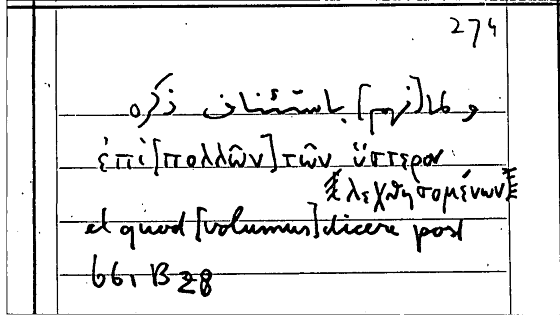 274
وما [نهم] باستئناف ذكره
ἐπὶ [πολλῶν] τῶν ὕστερον
λεχθησομένων
et quod [volumus] dicere post
66, B 28